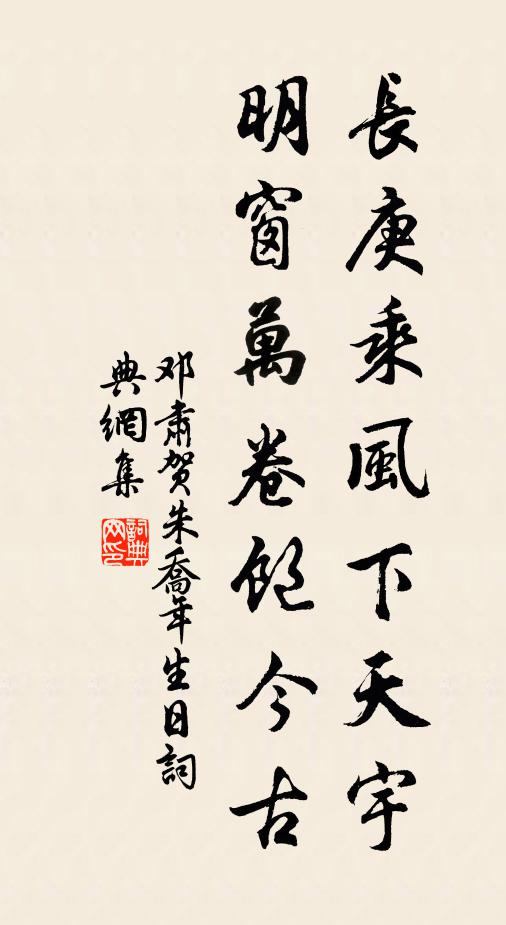 長庚乘風下天宇
明窗萬卷飽今古
邓肅賀朱喬年生日詞
典網集
詞典網印